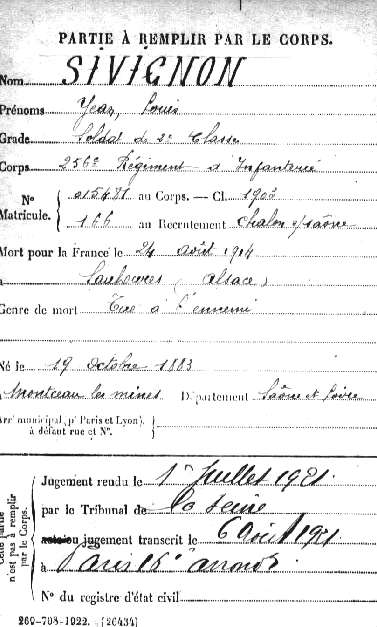 PARTIE À REMPLIR PAR LE CORPS.
Nom SIVIGNON
Prénoms Jean, Louis
Grade Soldat de 2e Classe
Corps 256e Régiment d'Infanterie
N° Matricule. { 015481 au Corps. — Cl. 1903
166 au Recrutement Chalon s/saône
Mort pour la France le 24 août 1914
à (Alsace)
Genre de mort Tué à l'ennemi
Né le 19 octobre 1883
Montceau les mines Département Saône et Loire
Arr' municipal (p' Paris et Lyon), à défaut rue et N°.
Cette partie n'est pas à remplir par le Corps.
Jugement rendu le 1er Juillet 1921.
par le Tribunal de la Seine
jugement transcrit le 6 Août 1921
à Paris arrondt
N° du registre d'état civil
269-708-1922. [26434]